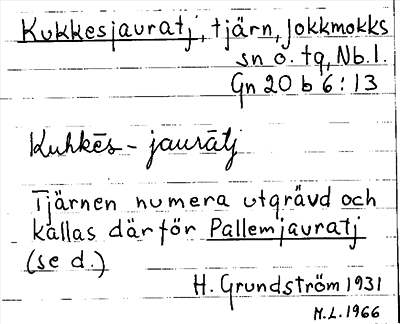 Kukkesjauratj, tjärn, Jokkmokks
sn o. tg, Nb.l.
Gn 20 b 6:13
Kuhkēs-jaurātj
Tjärnen numera utgrävd och
kallas därför Pallemjauratj
(se d.)
H. Grundström 1931
M.L. 1966